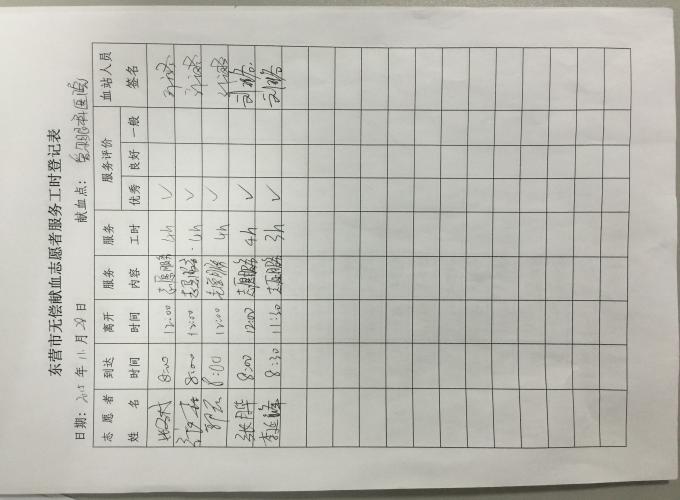 东营市无偿献血志愿者服务工时登记表
日期: 2015 年 11 月 29 日 献血点: 眼科医院
志愿者姓名 到达时间 离开时间 服务内容 服务工时 服务评价 血站人员签名
优秀 良好 一般
8:00 12:00 志愿服务 4h ✓
8:00 12:00 志愿服务 4h ✓
8:00 12:00 志愿服务 4h ✓
张月华 8:00 12:00 志愿服务 4h ✓
李延峰 8:30 11:30 志愿服务 3h ✓